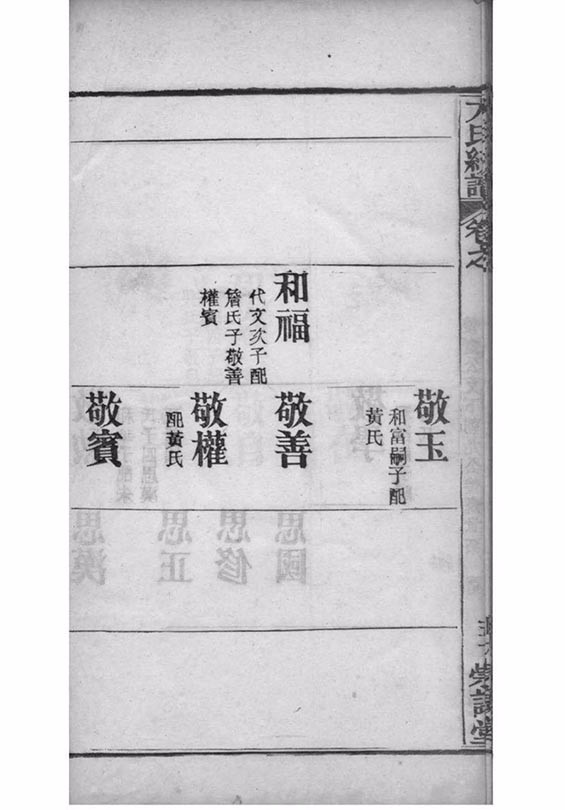 氏
卷之
崇譜堂
敬玉
和富嗣子配
黃氏
和福
代文次子配
詹氏子敬善
權賓
敬善
敬權
配黃氏
敬賓